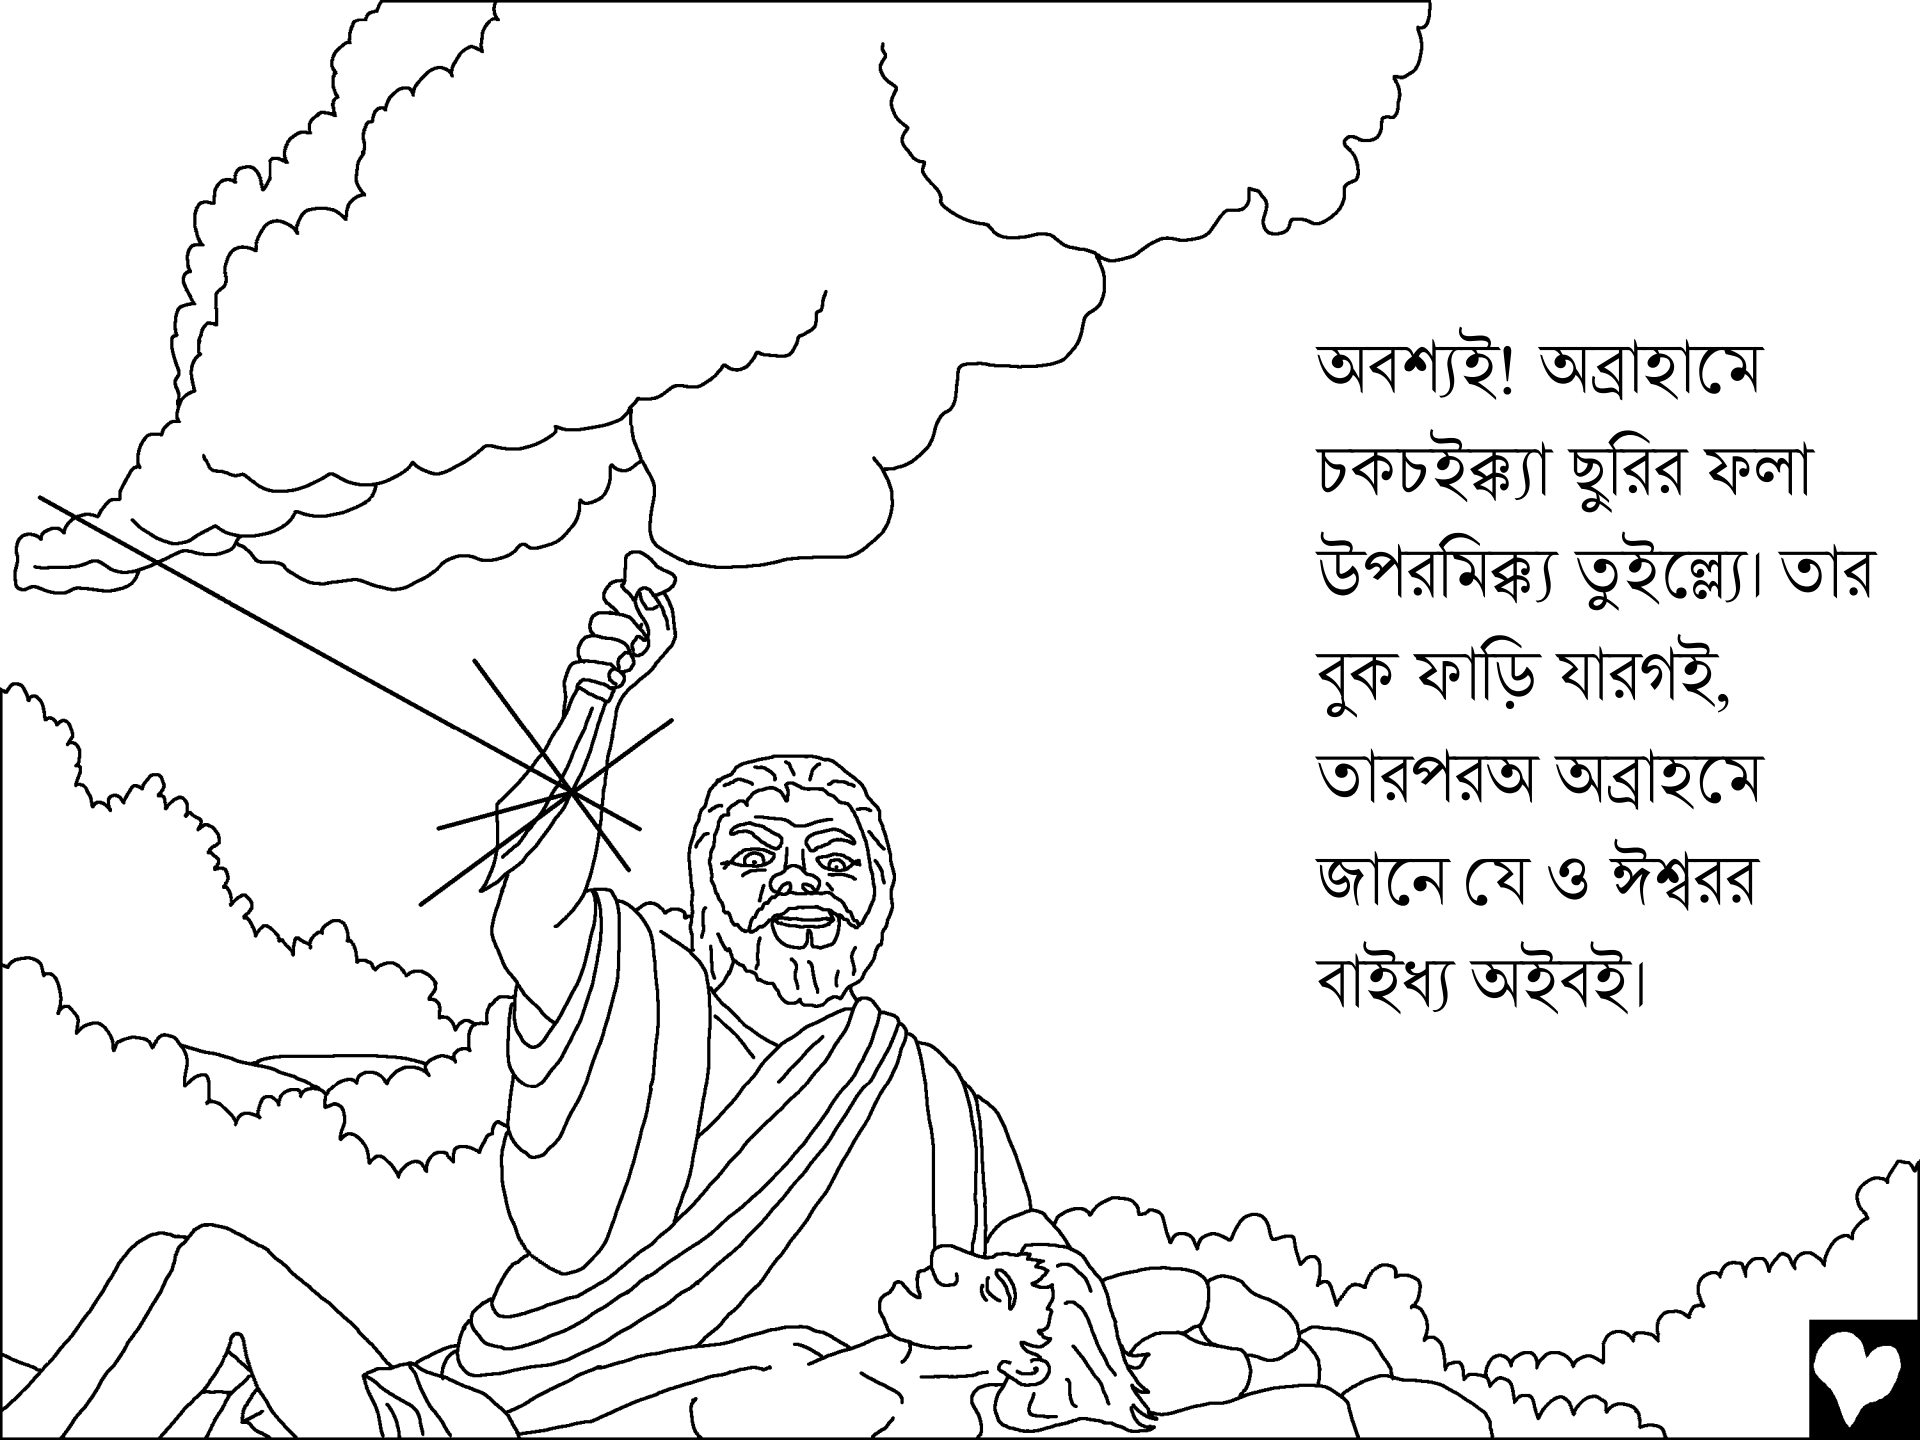 অবশ্যই! অব্রাহামে
চকচইক্ক্যা ছুরির ফলা
উপরমিক্ক্য তুইল্ল্যে। তার
বুক ফাড়ি যারগই,
তারপরঅ অব্রাহমে
জানে যে ও ঈশ্বরর
বাইধ্য অইবই।